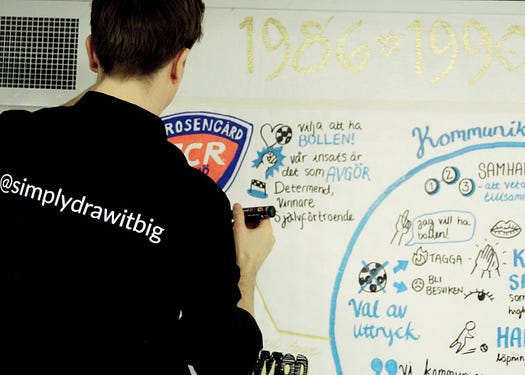 1986-1990
@simplydrawitbig
ROSENGÅRD
vilja att ha
BOLLEN!
vår insats är
det som AVGÖR
Determend,
Vinnare
Självförtroende
Kommunik
1 2 3
SAMHA
- att veta
tillsamm
jag vill ha
bollen!
TAGGA
BLI
BESVIKEN
Val av
uttryck
K
SA
som
high
HA
löpnin
Vi kommunic